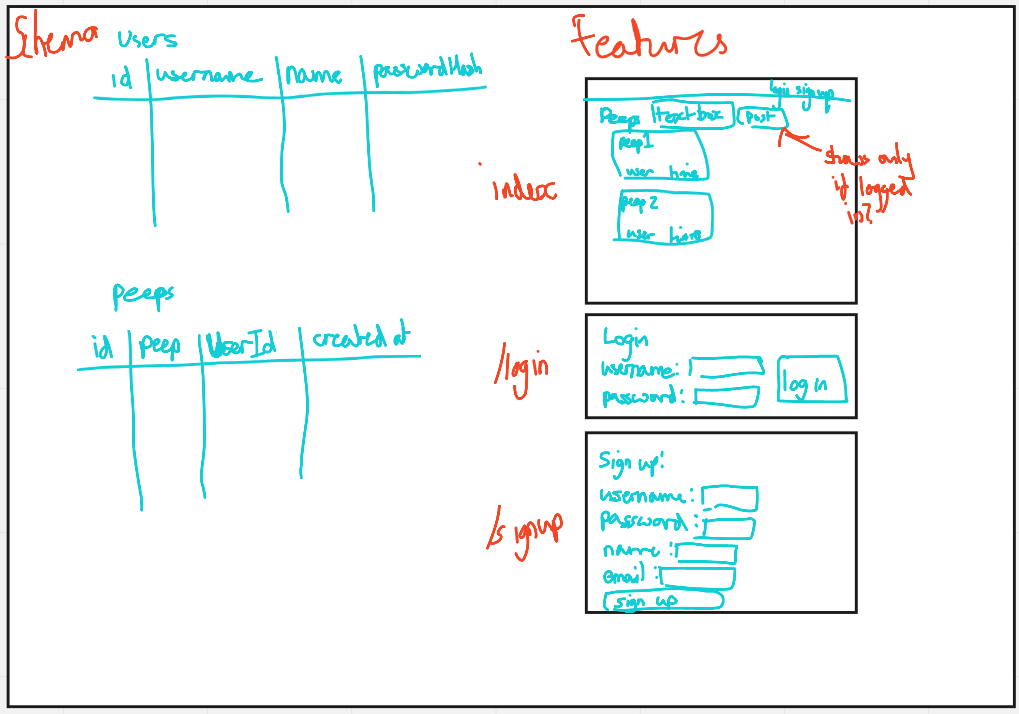 Schema
Users
id username name passwordHash
Peeps
id peep UserId created at
Features
index
login sign up
Peeps text box post
peep1
user time
peep 2
user time
shows only
if logged
in?
/login
Login
username:
password:
log in
/signup
Sign up:
username:
password:
name:
email:
sign up